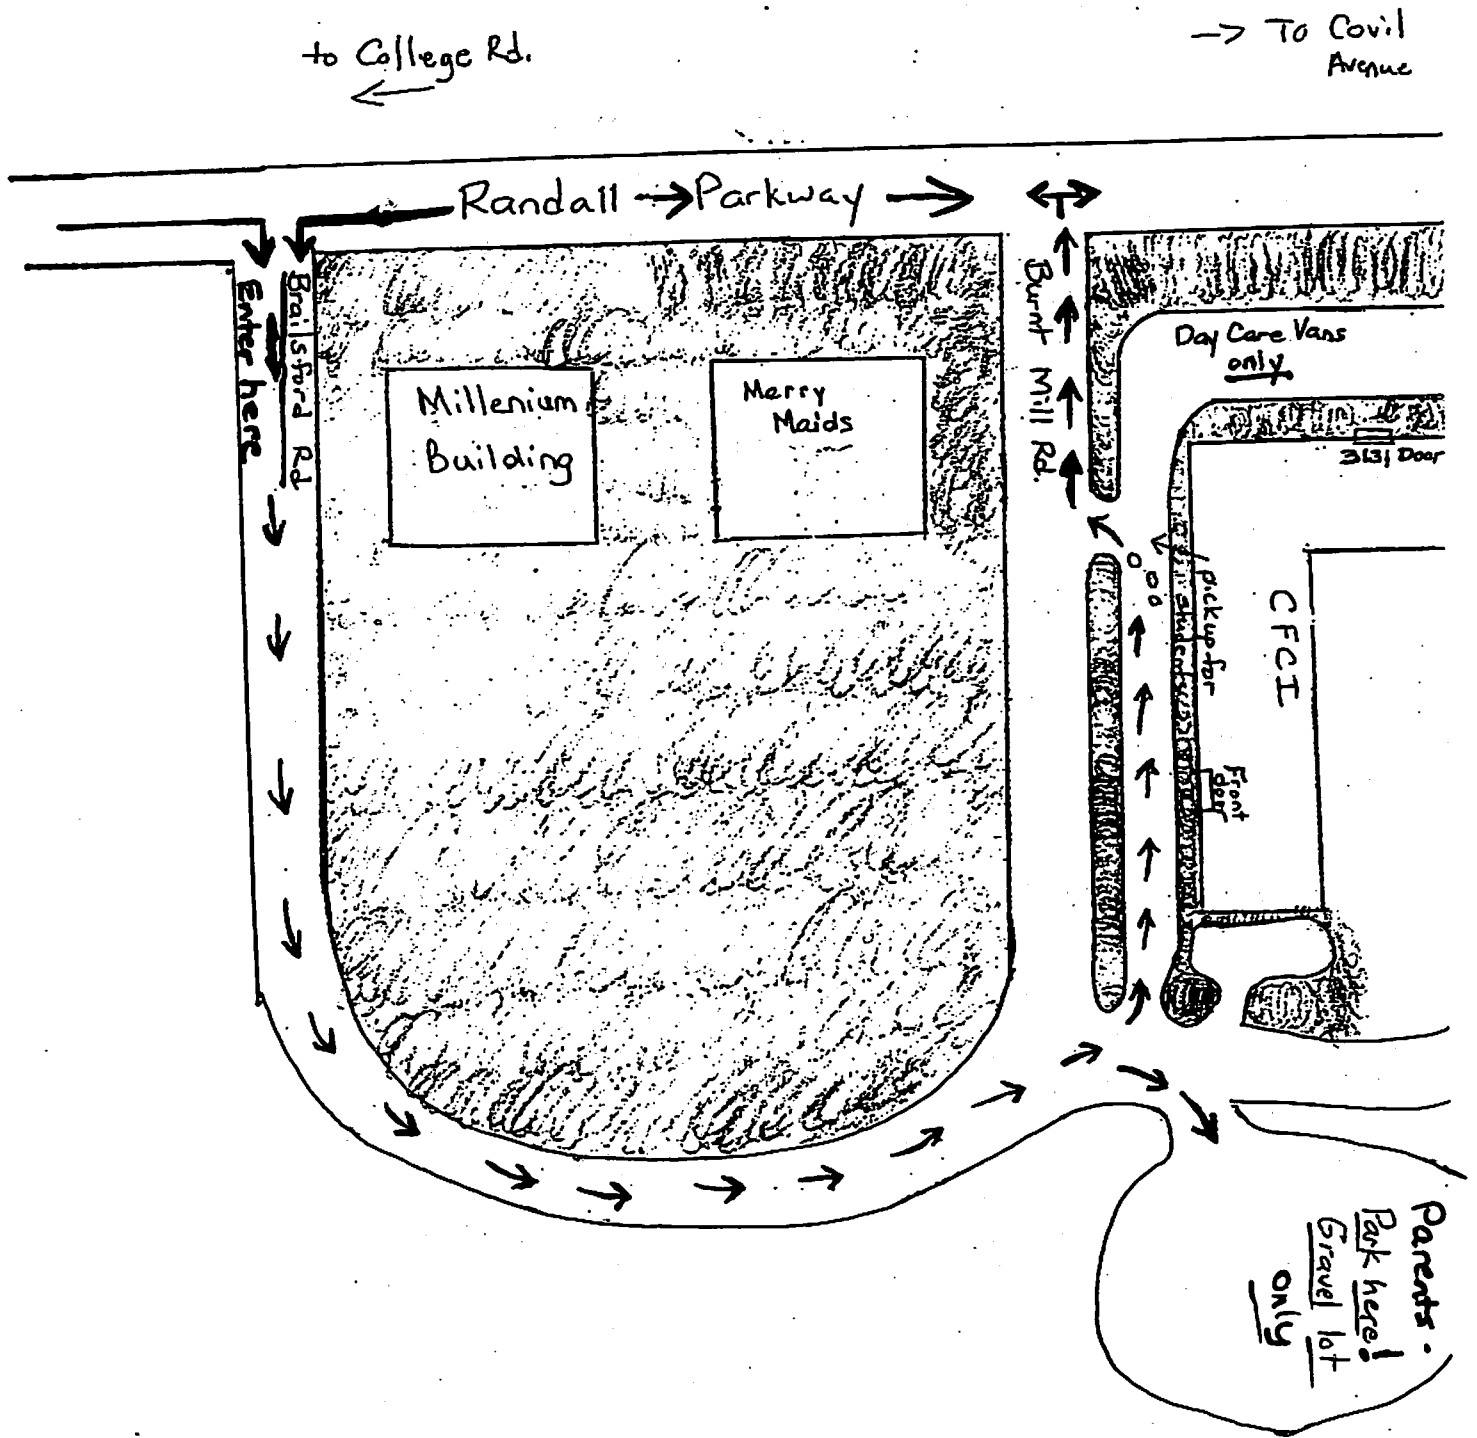 to College Rd.
-> To Covil
Avenue
Randall → Parkway →
Enter here
Brailsford Rd
Millenium
Building
Merry
Maids
Burnt Mill Rd.
Day Care Vans
only
3131 Door
pickup for
students
CFCI
Front
door
Parents -
Park here!
Gravel lot
only